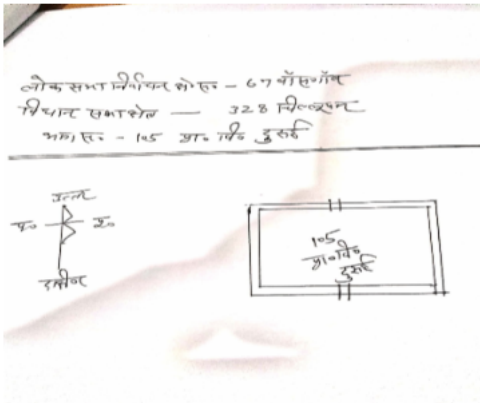 लोक सभा निर्वाचन क्षे० सं० - 67 बाँसगाँव
विधान सभा क्षेत्र — 328 चिल्लूपार
भाग सं० - 105 प्रा० वि० दुरुई
उत्तर
प० पू०
दक्षिण
105
प्रा० वि०
दुरुई